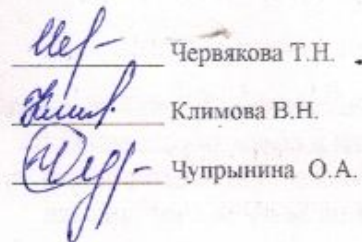 Червякова Т.Н.
Климова В.Н.
Чупрынина О.А.